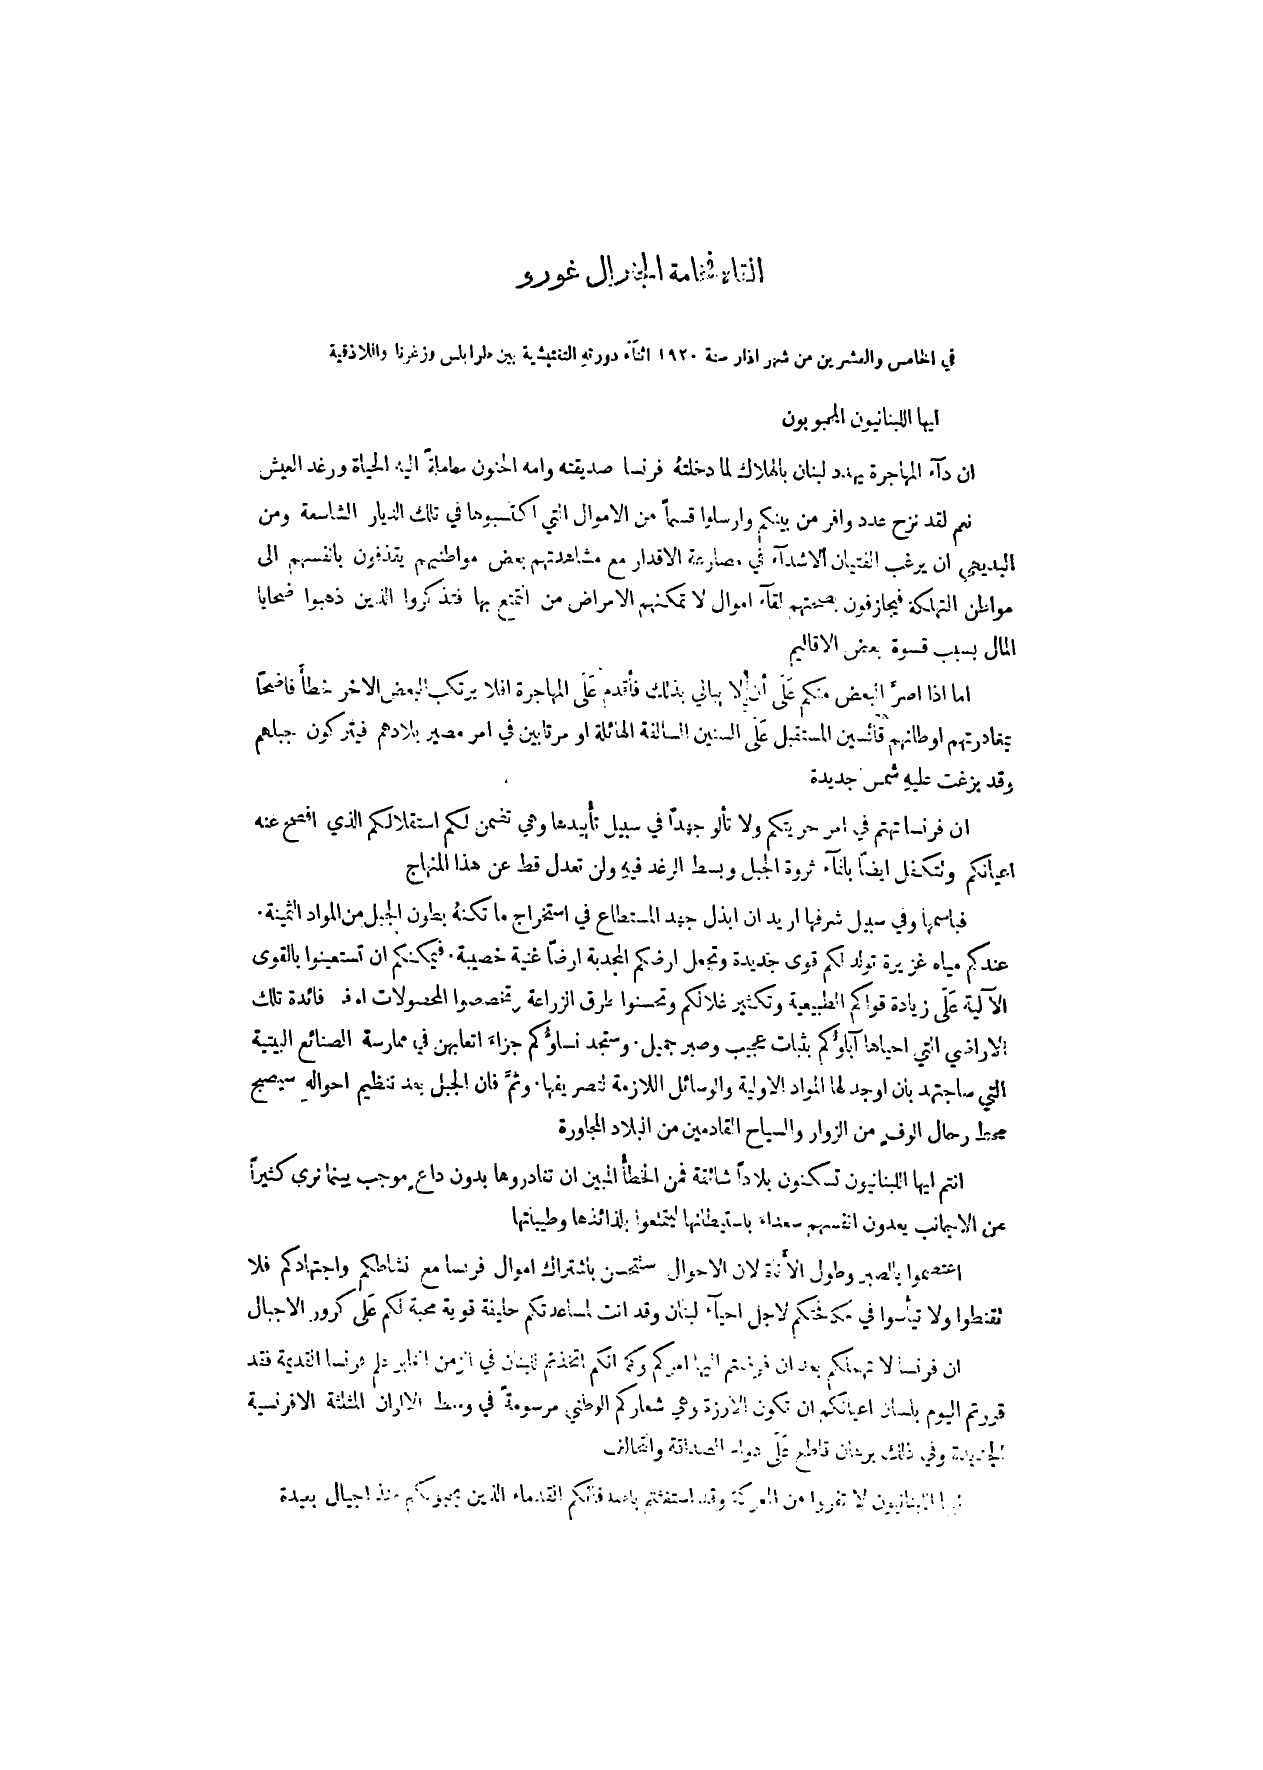 القاه فخامة الجنرال غورو
في الخامس والعشرين من شهر اذار سنة ١٩٢٠ اثنآء دورته التفتيشية بين طرابلس وزغرتا واللاذقية
ايها اللبنانيون المحبوبون
ان دآء المهاجرة يهدد لبنان بالهلاك لما دخلتهُ فرنسا صديقته وامه الحنون معاملةً اليه الحياة ورغد العيش
نعم لقد نزح عدد وافر من بينكم وارسلوا قسماً من الاموال التي اكتسبوها في تلك الديار الشاسعة ومن
البديهي ان يرغب الفتيان الاشدآء في مصارعة الاقدار مع مشاهدتهم بعض مواطنيهم يقذفون بانفسهم الى
مواطن التهلكة فيجازفون بصحتهم لقآء اموال لا تمكنهم الامراض من التمتع بها فتذكروا الذين ذهبوا ضحايا
المال بسبب قسوة بعض الاقاليم
اما اذا اصرَّ البعض منكم عَلَى أن لا يبالي بذلك فأقدم عَلَى المهاجرة افلا يرتكب البعض الاخر خطأً فاضحاً
بمغادرتهم اوطانهم قآئسين المستقبل عَلَى السنين السالفة الهائلة او مرتابين في امر مصير بلادهم فيتركون جبلهم
وقد بزغت عليهِ شمس جديدة
ان فرنسا تهتم في امر حريتكم ولا تألو جهداً في سبيل تأييدها وهي تضمن لكم استقلالكم الذي افصح عنه
اعيانكم وتتكفل ايضاً بانمآء ثروة الجبل وبسط الرغد فيهِ ولن تعدل قط عن هذا المنهاج
فباسمها وفي سبيل شرفها اريد ان ابذل جهد المستطاع في استخراج ما تكنهُ بطون الجبل من المواد الثمينة.
عندكم مياه غزيرة تولد لكم قوى جديدة وتجعل ارضكم المجدبة ارضاً غنية خصيبة. فيمكنكم ان تستعينوا بالقوى
الآلية عَلَى زيادة قواكم الطبيعية وتكثير غلالكم وتحسنوا طرق الزراعة وتخصصوا المحصولات فائدة تلك
الاراضي التي احياها آباؤكم بثبات عجيب وصبر جميل. وستجد نساؤكم جزاء اتعابهن في ممارسة الصنائع البيتية
التي ساجتهد بان اوجد لها المواد الاولية والوسائل اللازمة لتصريفها. وثمَّ فان الجبل بعد تنظيم احواله سيصبح
محط رحال الوف من الزوار والسياح القادمين من البلاد المجاورة
انتم ايها اللبنانيون تسكنون بلاداً شائقة فمن الخطأ المبين ان تغادروها بدون داع موجب بينما نرى كثيراً
من الاجانب يعدون انفسهم سعداء باستيطانها ليتمتعوا بلذائذها وطيباتها
اعتصموا بالصبر وطول الأناة لان الاحوال ستتحسن باشتراك اموال فرنسا مع نشاطكم واجتهادكم فلا
تقنطوا ولا تيأسوا في مكافحتكم لاجل احيآء لبنان وقد اتت لمساعدتكم حليفة قوية محبة لكم عَلَى كرور الاجيال
ان فرنسا لا تهملكم بعد ان فوضتم اليها اموركم وكما انكم اتخذتم للبنان في الزمن الغابر علم فرنسا القديمة فقد
قررتم اليوم بلسان اعيانكم ان تكون الارزة وهي شعاركم الوطني مرسومةً في وسط الالوان المثلثة الافرنسية
الجديدة وفي ذلك برهان قاطع عَلَى دوام الصداقة والتحالف
ايها اللبنانيون لا تفروا من المعركة وقد استغثتم باصدقائكم القدماء الذين يحبونكم منذ اجيال بعيدة